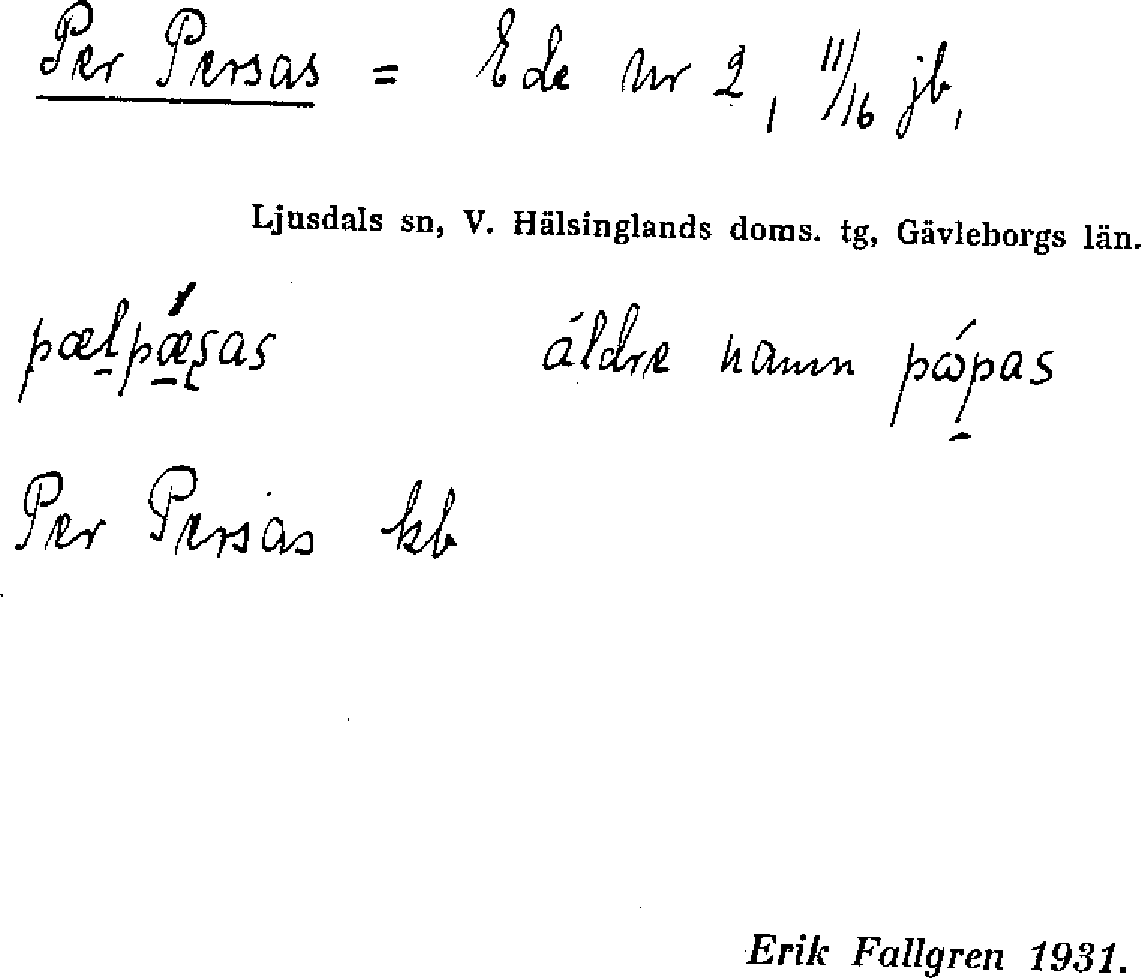 Per Persas = Ede Nr 2, 11/16 jb,
Ljusdals sn, V. Hälsinglands doms. tg, Gävleborgs län.
pæḷpǽʂas äldre namn pώpas
Per Persas kb
Erik Fallgren 1931.